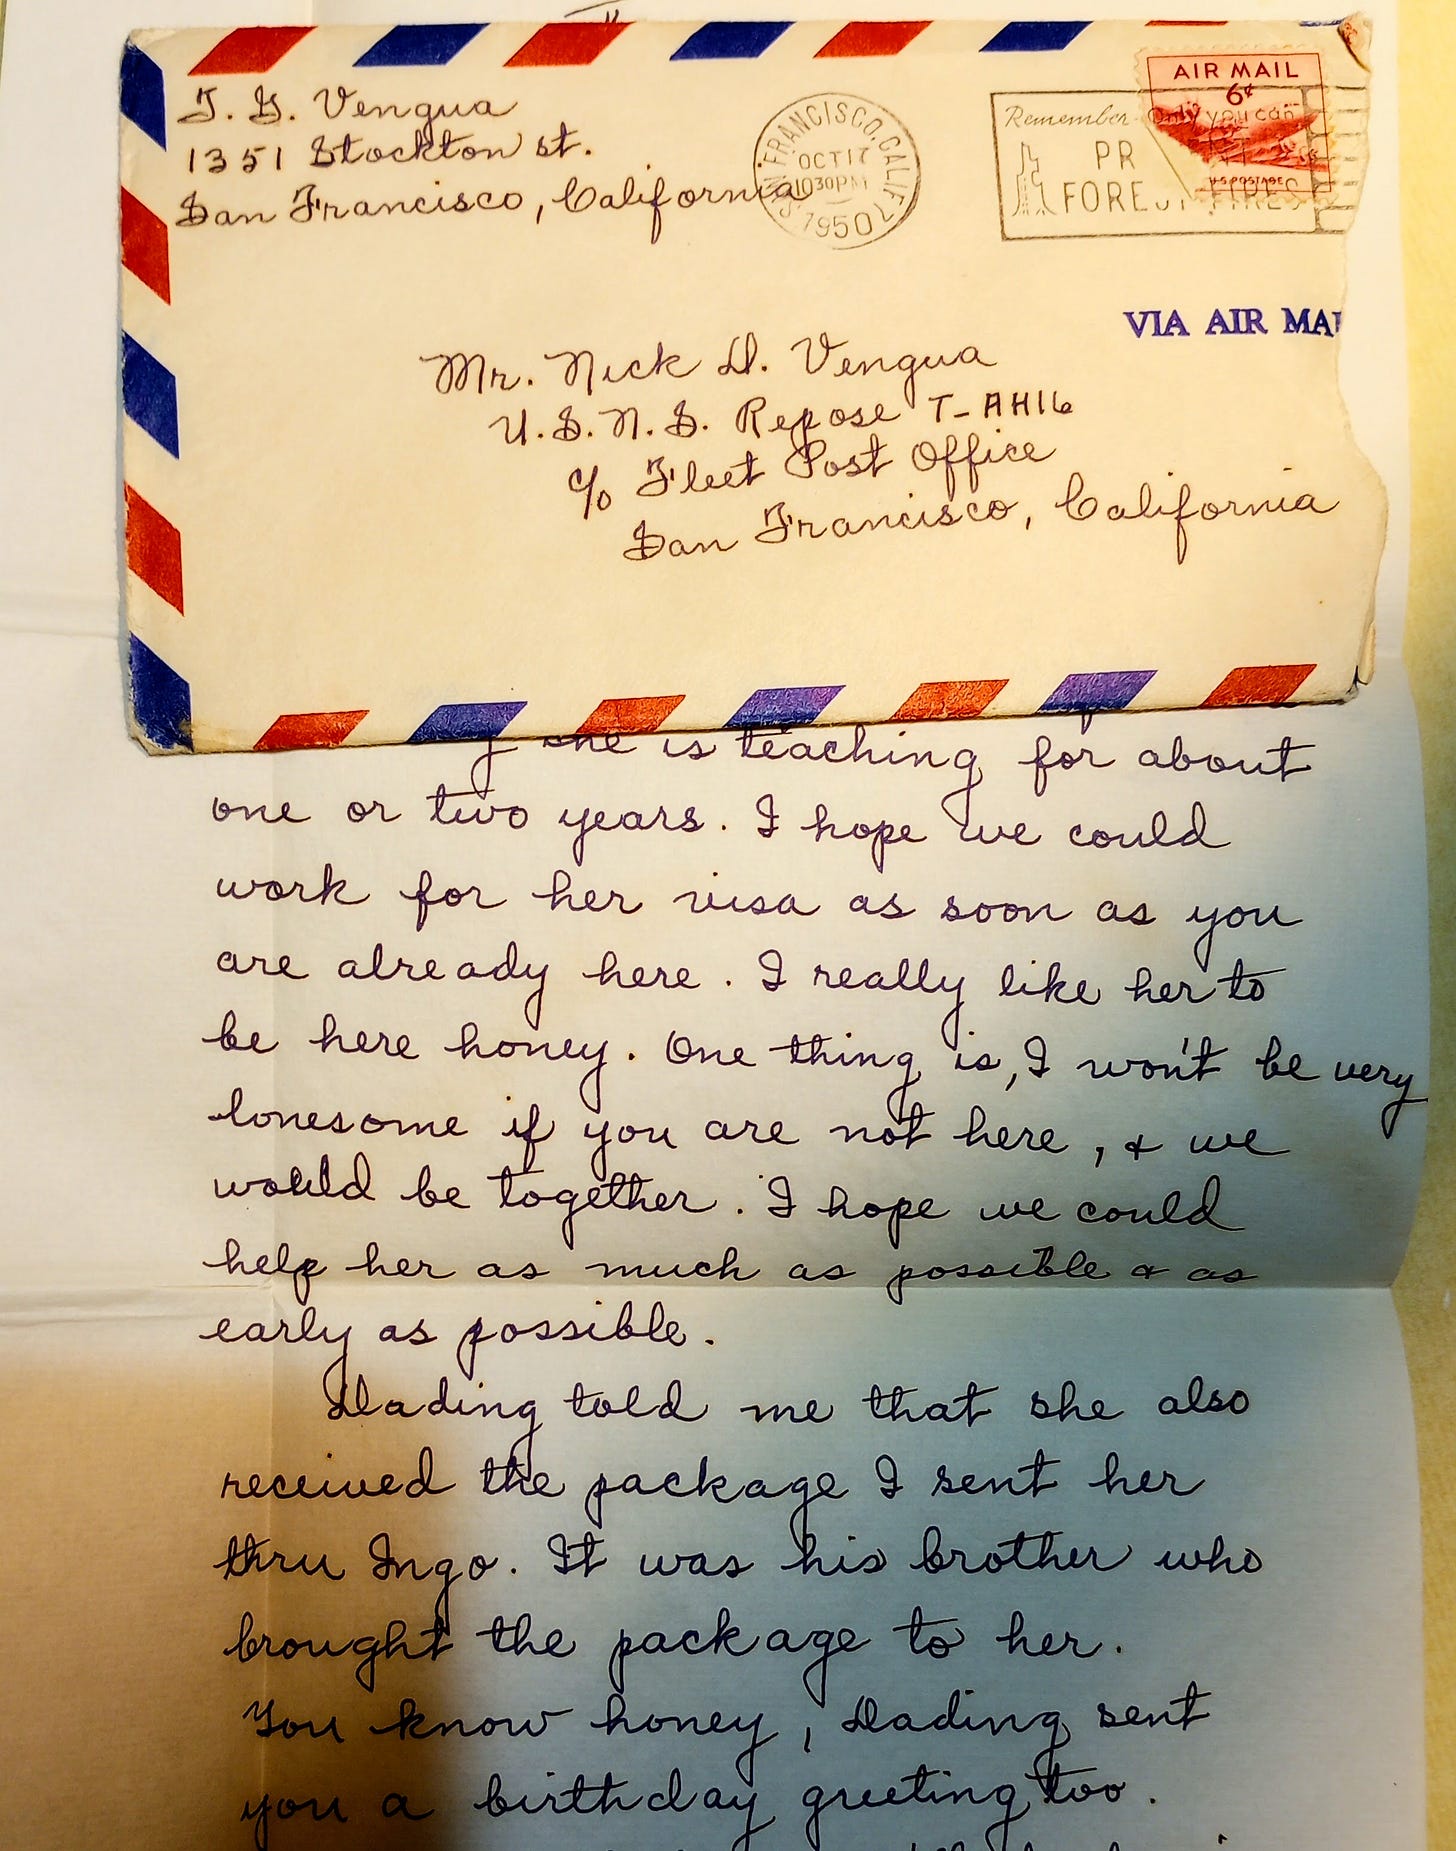 T. G. Vengua
1351 Stockton st.
San Francisco, California
SAN FRANCISCO, CALIF.
OCT 17
1030PM
1950
Remember Only you can
PR
FOREST FIRES
AIR MAIL
6¢
U.S. POSTAGE
VIA AIR MAI
Mr. Nick D. Vengua
U.S.N.S. Repose T-AH16
c/o Fleet Post Office
San Francisco, California
she is teaching for about
one or two years. I hope we could
work for her visa as soon as you
are already here. I really like her to
be here honey. One thing is, I won't be very
lonesome if you are not here, & we
would be together. I hope we could
help her as much as possible & as
early as possible.
Dading told me that she also
received the package I sent her
thru Ingo. It was his brother who
brought the package to her.
You know honey, Dading sent
you a birthday greeting too.